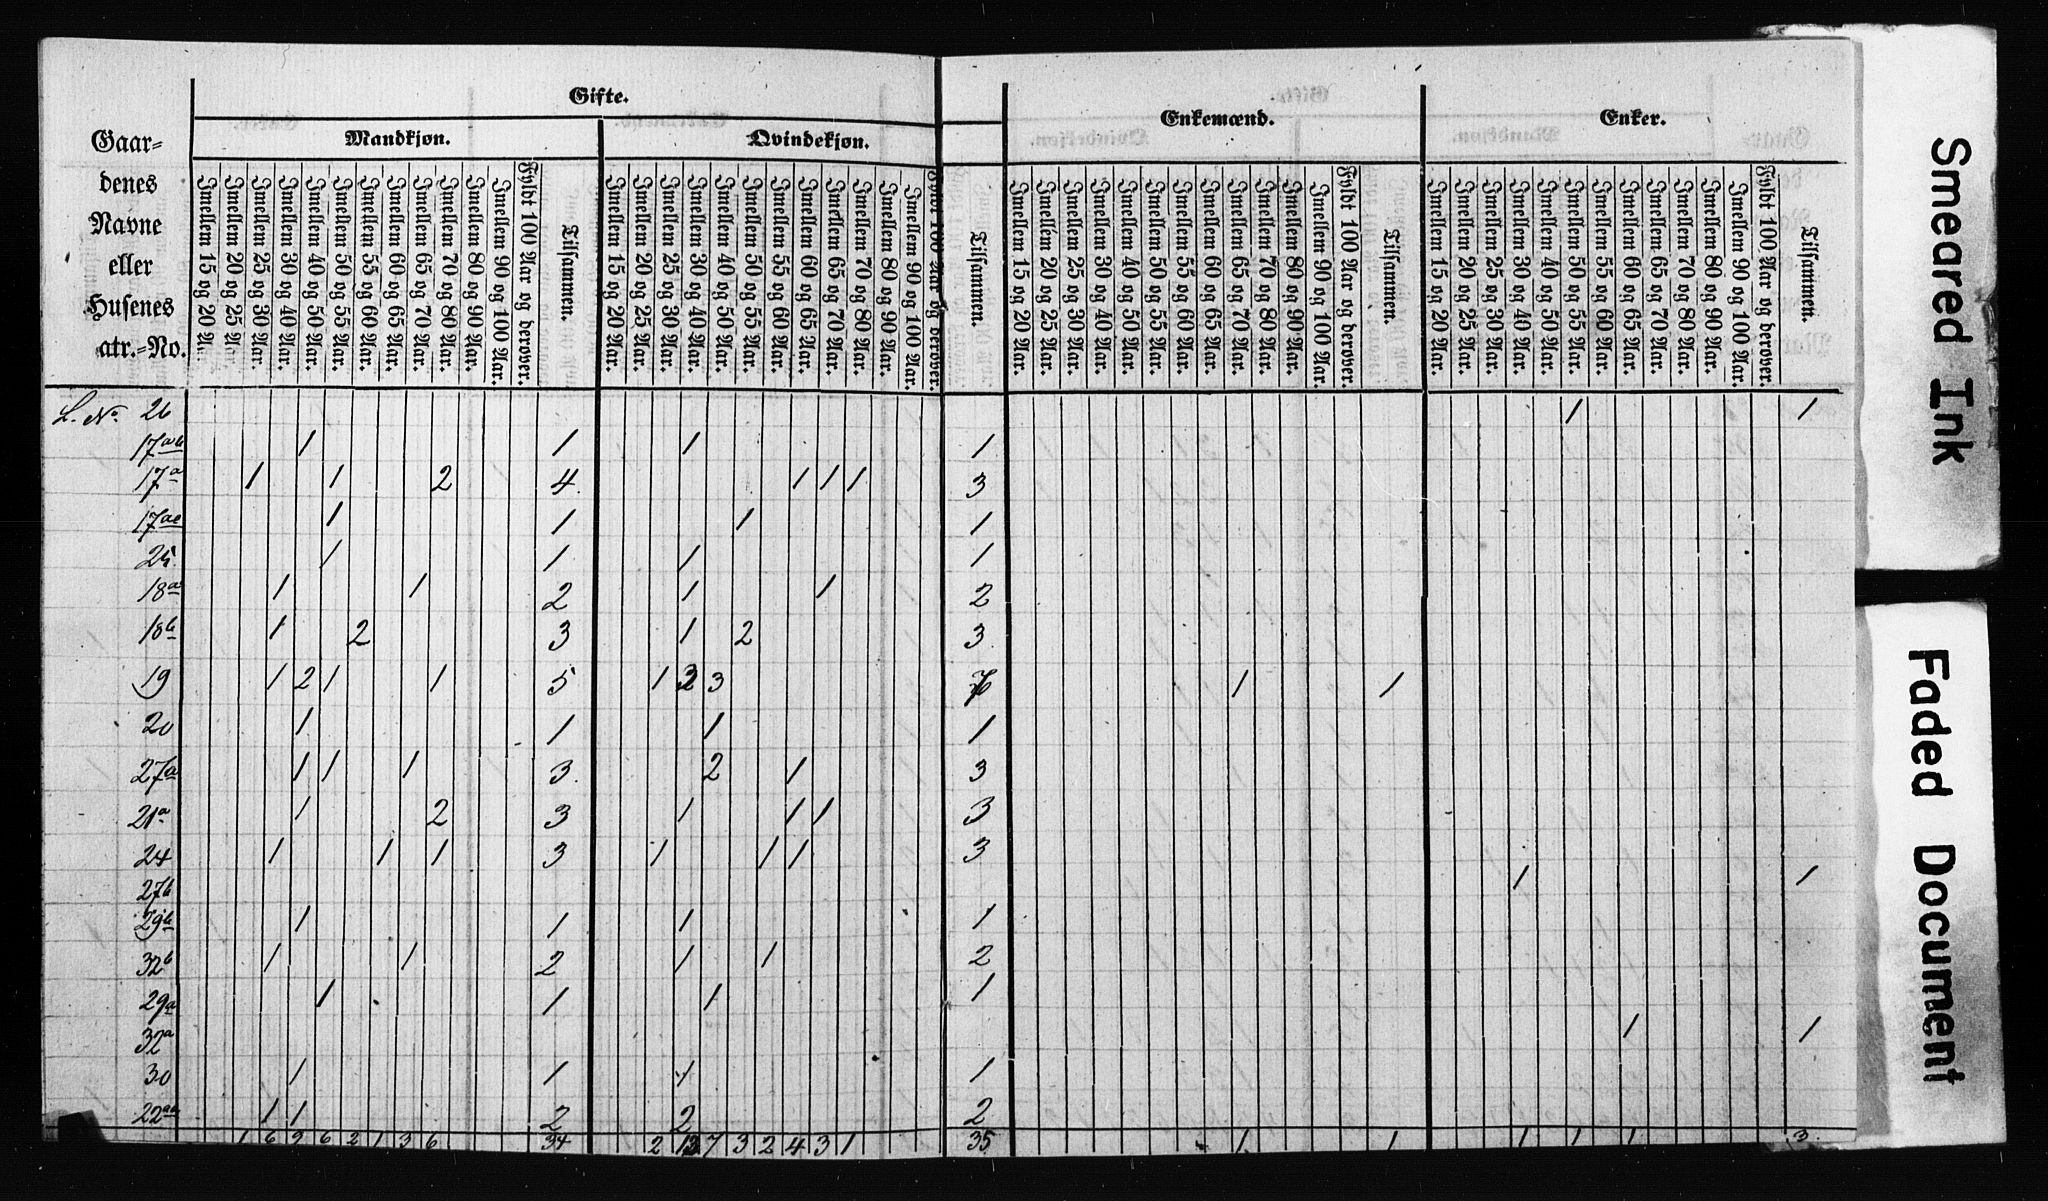 Gifte.
Enkemænd.
Enker.
Mandkjøn.
Qvindekjøn.
Gaar=
denes
Navne
eller
Husenes
atr.=No.
Imellem 15 og 20 Aar.
Imellem 20 og 25 Aar.
Imellem 25 og 30 Aar.
Imellem 30 og 40 Aar.
Imellem 40 og 50 Aar.
Imellem 50 og 55 Aar.
Imellem 55 og 60 Aar.
Imellem 60 og 65 Aar.
Imellem 65 og 70 Aar.
Imellem 70 og 80 Aar.
Imellem 80 og 90 Aar.
Imellem 90 og 100 Aar.
Fyldt 100 Aar og derover.
Tilsammen.
Imellem 15 og 20 Aar.
Imellem 20 og 25 Aar.
Imellem 25 og 30 Aar.
Imellem 30 og 40 Aar.
Imellem 40 og 50 Aar.
Imellem 50 og 55 Aar.
Imellem 55 og 60 Aar.
Imellem 60 og 65 Aar.
Imellem 65 og 70 Aar.
Imellem 70 og 80 Aar.
Imellem 80 og 90 Aar.
Imellem 90 og 100 Aar.
Fyldt 100 Aar og derover.
Tilsammen.
Imellem 15 og 20 Aar.
Imellem 20 og 25 Aar.
Imellem 25 og 30 Aar.
Imellem 30 og 40 Aar.
Imellem 40 og 50 Aar.
Imellem 50 og 55 Aar.
Imellem 55 og 60 Aar.
Imellem 60 og 65 Aar.
Imellem 65 og 70 Aar.
Imellem 70 og 80 Aar.
Imellem 80 og 90 Aar.
Imellem 90 og 100 Aar.
Fyldt 100 Aar og derover.
Tilsammen.
Imellem 15 og 20 Aar.
Imellem 20 og 25 Aar.
Imellem 25 og 30 Aar.
Imellem 30 og 40 Aar.
Imellem 40 og 50 Aar.
Imellem 50 og 55 Aar.
Imellem 55 og 60 Aar.
Imellem 60 og 65 Aar.
Imellem 65 og 70 Aar.
Imellem 70 og 80 Aar.
Imellem 80 og 90 Aar.
Imellem 90 og 100 Aar.
Fyldt 100 Aar og derover.
Tilsammen.
L. No. 26 1 1
17ab 1 1 1 1
17a 1 1 2 4 1 1 1 3
17ac 1 1 1 1
25. 1 1 1 1
18a 1 1 2 1 1 2
18b 1 2 3 1 2 3
19 1 2 1 1 5 1 3 3 7 1 1
20 1 1 1 1
27a 1 1 1 3 2 1 3
21a 1 2 3 1 1 1 3
24 1 1 1 3 1 1 1 3
27b 1 1
29b 1 1 1 1
32b 1 1 2 1 1 2
29a 1 1 1 1
32a 1 1
30 1 1 1 1
22aa 1 1 2 2 2
1 6 9 6 2 1 3 6 34 2 13 7 3 2 4 3 1 35 1 1 1 1 1 3
Smeared Ink
Faded Document